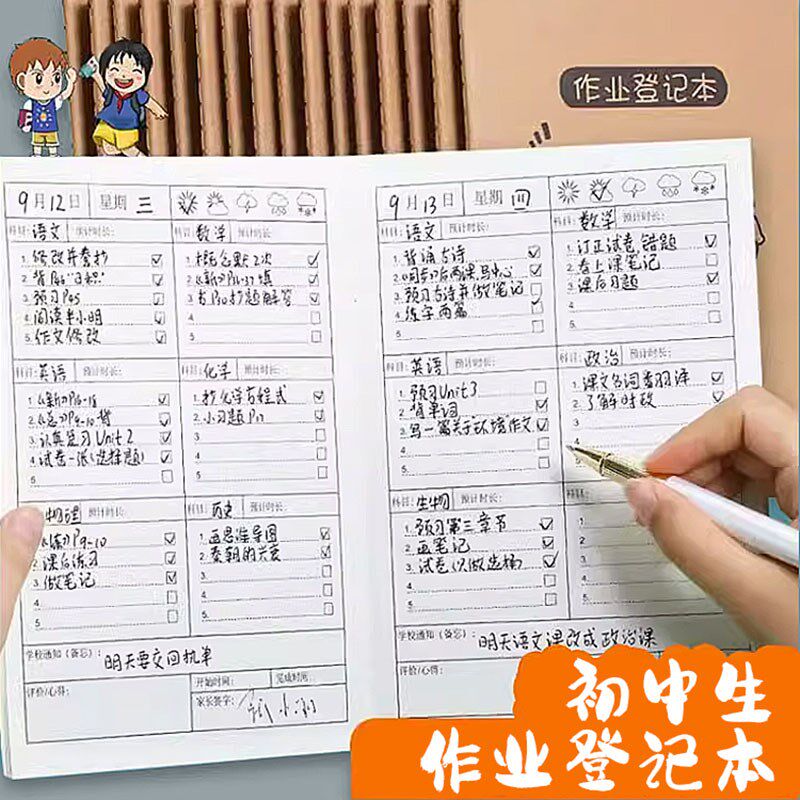 作业登记本
9月12日 星期 三
科目:语文 预计时长:
1.修改并誊抄
2.背P66"日积"
3.预习P65
4.阅读半小时
5.作文修改
科目:数学 预计时长:
1.概念默2次
2.《新》P36-37填
3.书P20抄题解答
4.
5.
科目:英语 预计时长:
1.《新》P16-18
2.《总》P9-10背
3.认真复习Unit 2
4.试卷一张(选择题)
5.
科目:化学 预计时长:
1.抄化学方程式
2.小习题P12
3.
4.
5.
物理 预计时长:
《练习》P9-10
2.课后练习
3.做笔记
4.
5.
科目:历史 预计时长:
1.画思维导图
2.秦朝的兴衰
3.
4.
5.
学校通知(备忘):
明天要交回执单
评价/心得:
开始时间: 完成时间:
家长签字:
9月13日 星期 四
科目:语文 预计时长:
1.背诵古诗
2.《同步》后两课,易中心
3.预习古诗并做笔记
4.练字两篇
5.
科目:数学 预计时长:
1.订正试卷,错题
2.看上课笔记
3.课后习题
4.
5.
科目:英语 预计时长:
1.预习Unit 3
2.背单词
3.写一篇关于"环境"作文
4.
5.
科目:政治 预计时长:
1.课文名词
2.了解时政
3.
4.
科目:生物 预计时长:
1.预习第三章节
2.画笔记
3.试卷(只做选择)
4.
5.
科目:
1.
2.
3.
4.
5.
学校通知(备忘):
明天语文课改成政治课
评价/心得:
初中生
作业登记本